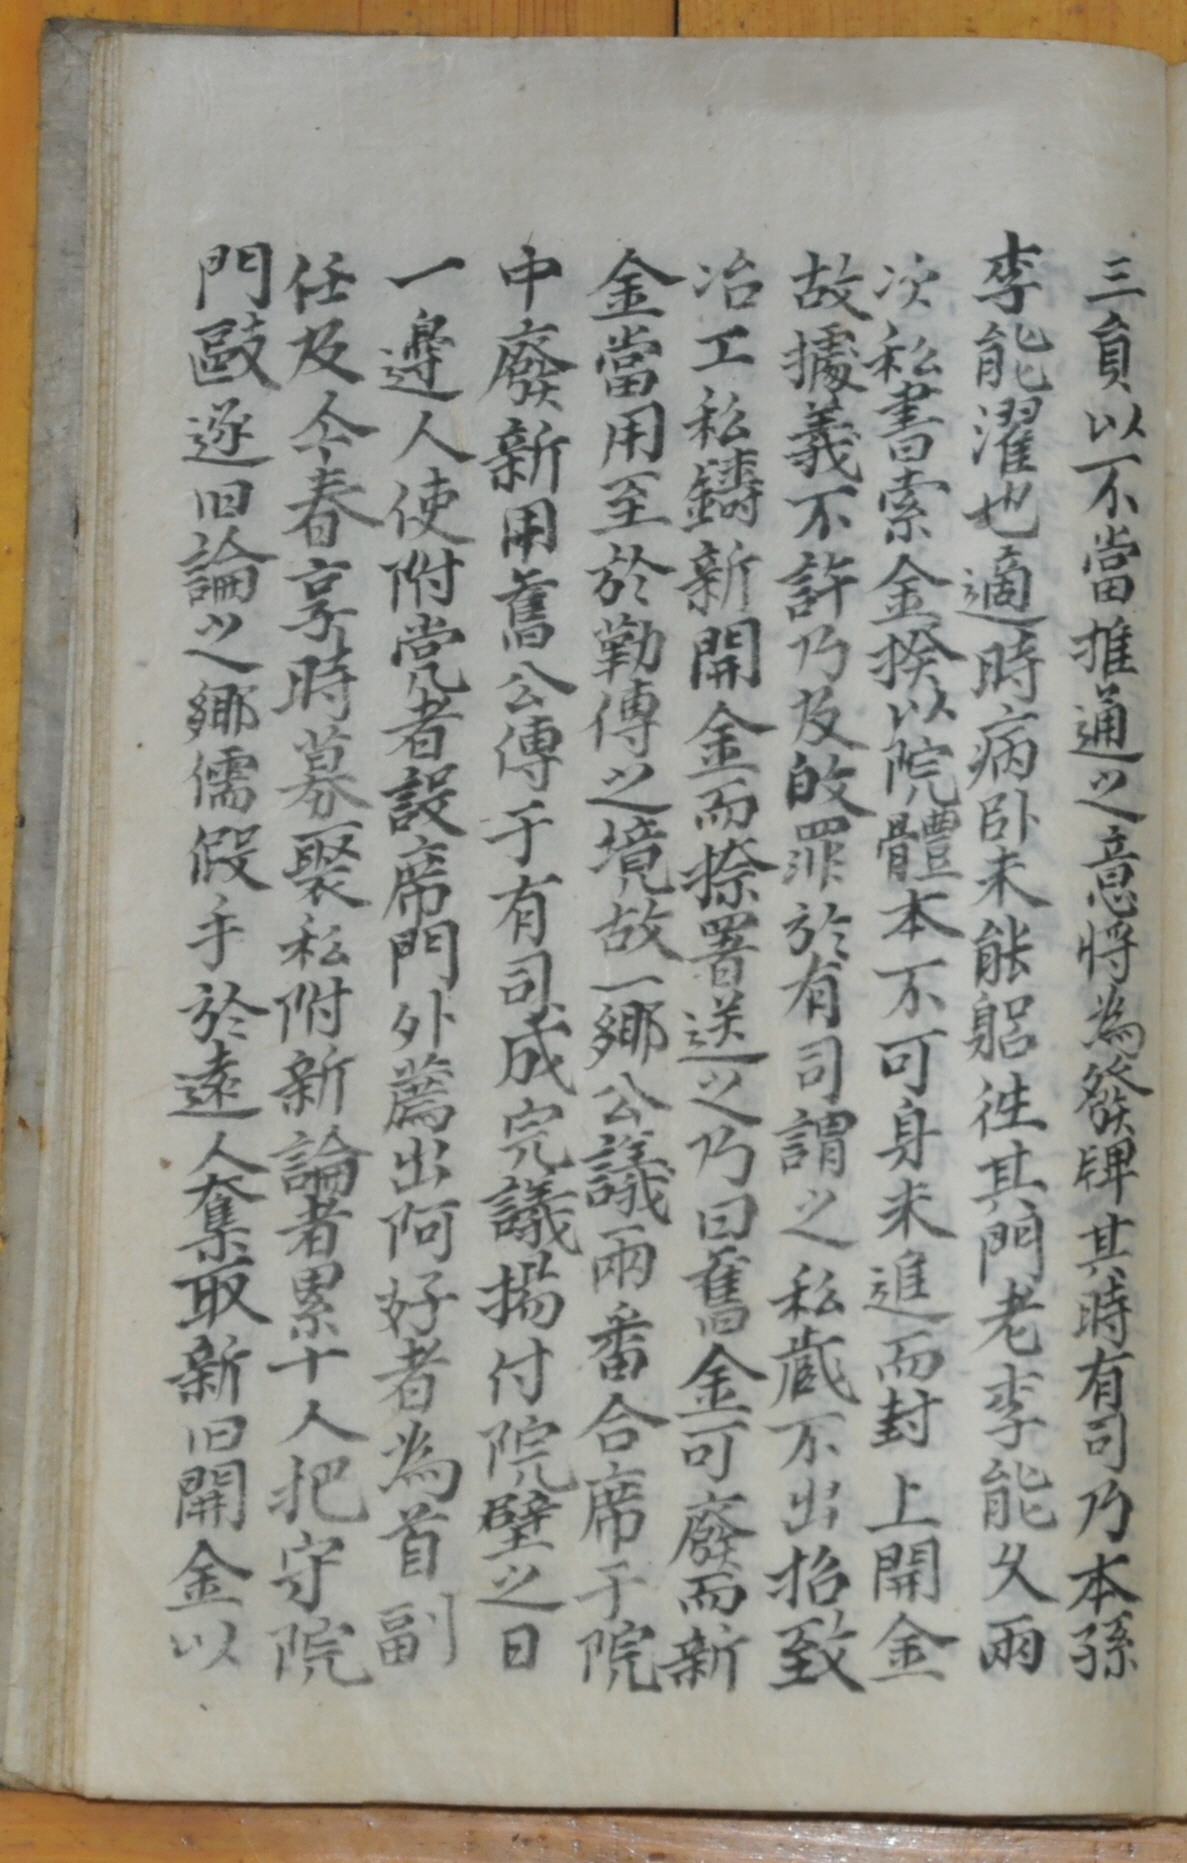 三負以不當推通之意將為發牌其時有司乃本孫
李能濯也適時病卧未能躬徃其門老李能久兩
次私書索金揆以院體本不可身来進而封上開金
故據義不許乃及故罪於有司謂之私藏不出招致
冶工私鑄新開金而捺署送之乃曰舊金可廢而新
金當用至於勒傳之境故一鄉公議兩番合席于院
中廢新用舊公傳于有司成完議揭付院壁之日
一邊人使附黨者設席門外薦出阿好者為首副
任及今春享時募聚私附新論者累十人把守院
門敺逐旧論之鄉儒假手於遠人奪取新旧開金以